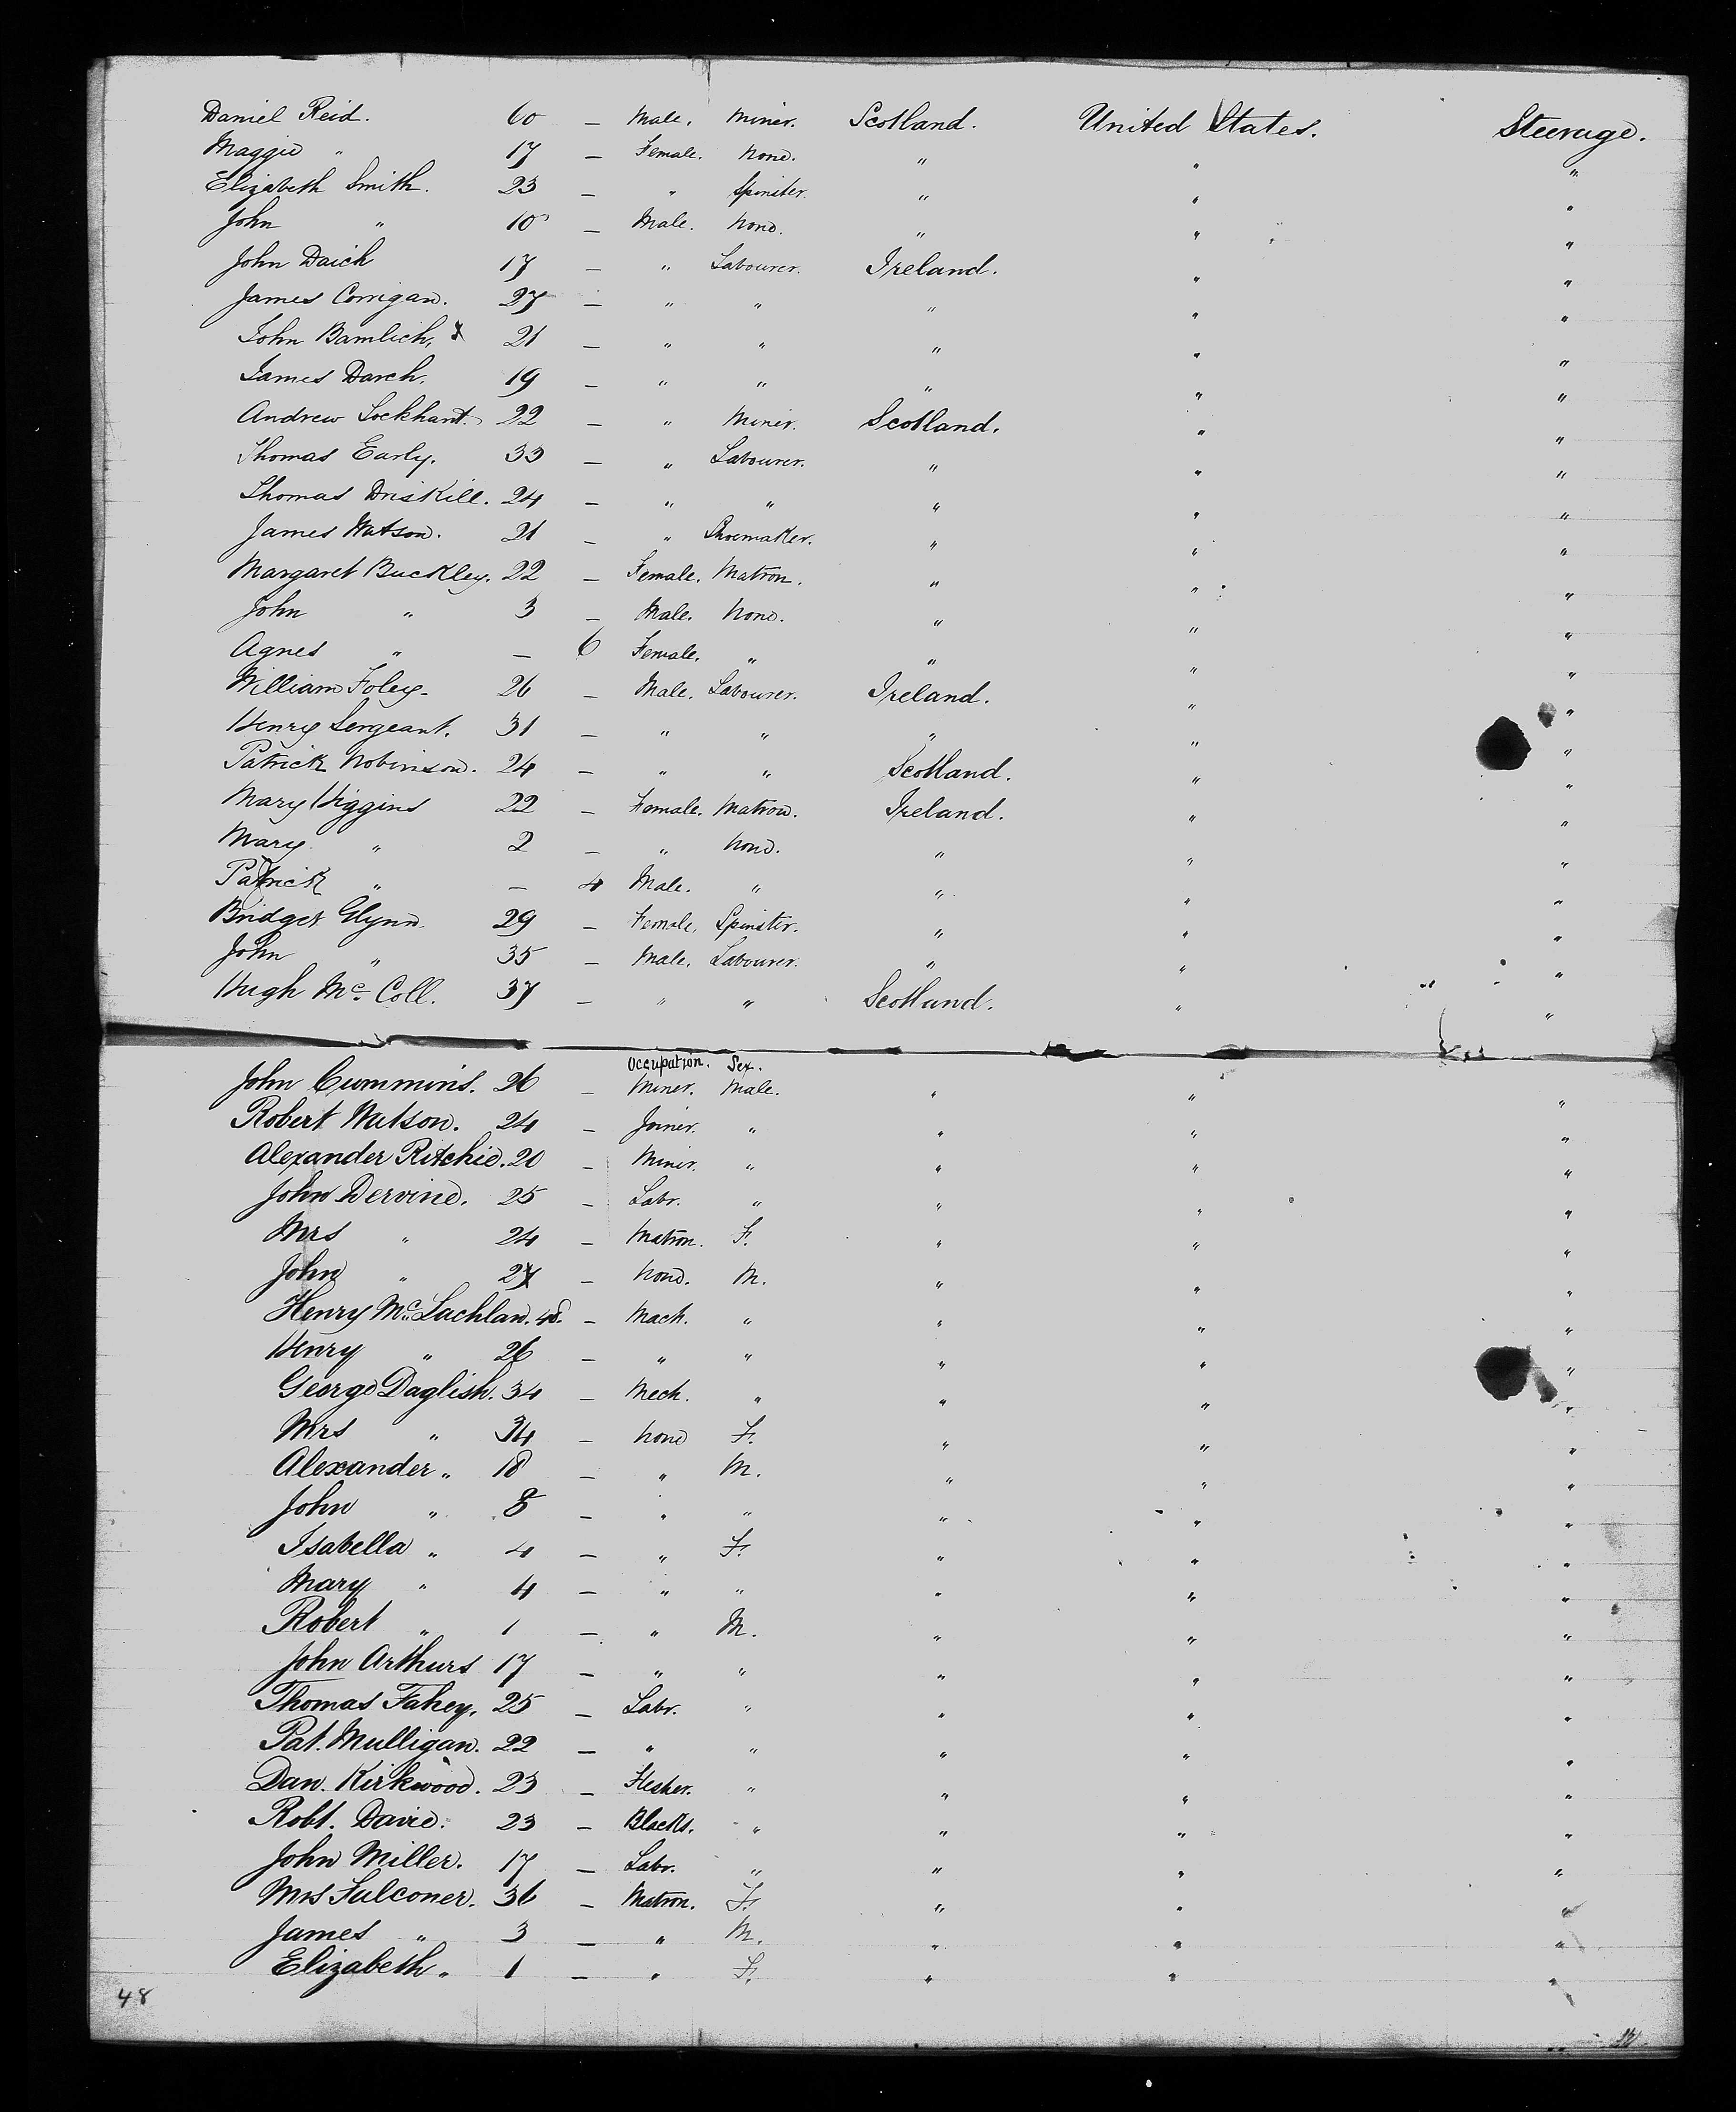 Daniel Reid. 60 — Male. Miner. Scotland. United States. Steerage.
Maggie " 17 — Female. None. " " "
Elizabeth Smith. 23 — " Spinster. " " "
John " 10 — Male. None. " " "
John Daich 17 — " Labourer. Ireland. " "
James Corrigan. 27 — " " " " "
John Bamlich, 21 — " " " " "
James Darch. 19 — " " " " "
Andrew Lockhart. 22 — " Miner. Scotland. " "
Thomas Early. 33 — " Labourer. " " "
Thomas Driskill. 24 — " " " " "
James Watson. 21 — " Shoemaker. " " "
Margaret Buckley. 22 — Female. Matron. " " "
John " 3 — Male. None. " " "
Agnes " — 6 Female. " " " "
William Foley. 26 — Male. Labourer. Ireland. " "
Henry Sergeant. 31 — " " " " "
Patrick Nobinson. 24 — " " Scotland. " "
Mary Higgins 22 — Female. Matron. Ireland. " "
Mary " 2 — " None. " " "
Patrick " — 4 Male. " " " "
Bridget Glynn. 29 — Female. Spinster. " " "
John " 35 — Male. Labourer. " " "
Hugh Mc. Coll. 37 — " " Scotland. " "
Occupation. Sex.
John Cummins. 26 — Miner. Male. " " "
Robert Watson. 24 — Joiner. " " " "
Alexander Ritchie. 20 — Miner. " " " "
John Dervine. 25 — Labr. " " " "
Mrs " 24 — Matron. F. " " "
John " — None. M. " " "
Henry Mc. Lachlan. 48. — Mach. " " " "
Henry " 26 — " " " " "
George Daglish. 34 — Mech. " " " "
Mrs " 34 — None F. " " "
Alexander " 10 — " M. " " "
John " 8 — " " " " "
Isabella " 4 — " F. " " "
Mary " 4 — " " " " "
Robert " 1 — " M. " " "
John Arthurs 17 — " " " " "
Thomas Fahey. 25 — Labr. " " " "
Pat. Mulligan. 22 — " " " " "
Dan. Kirkwood. 23 — Flesher. " " " "
Robt. David. 23 — Blacks. " " " "
John Miller. 17 — Labr. " " " "
Mrs Falconer. 36 — Matron. F. " " "
James " 3 — " M. " " "
Elizabeth " 1 — " F. " " "
48